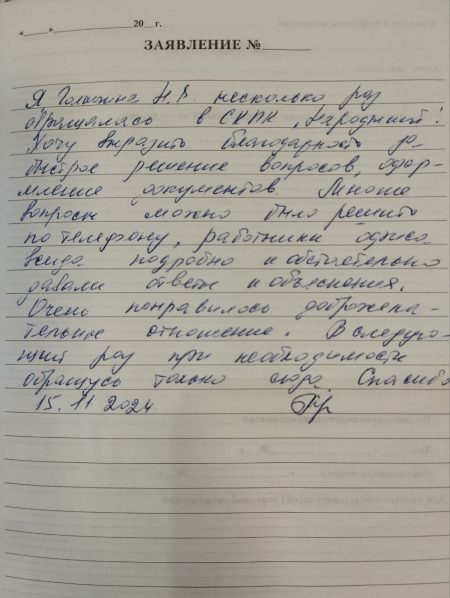 «____»____________20__г.
ЗАЯВЛЕНИЕ №_______
Я, Н.В. несколько раз
обращалась в СКПК „Народный"!
Хочу выразить благодарность за
быстрое решение вопросов, офор-
мление документов. Многие
вопросы можно было решить
по телефону, работники офиса
всегда подробно и обстоятельно
давали ответы и объяснения.
Очень понравилось доброжела-
тельное отношение. В следую-
щий раз при необходимости
обращусь только сюда. Спасибо
15.11.2024.